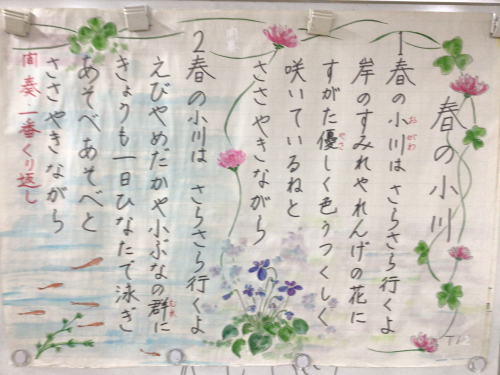 春の小川
1 春の小川は さらさら行くよ
岸のすみれやれんげの花に
すがた優しく色うつくしく
咲いているねと
ささやきながら
2 春の小川は さらさら行くよ
えびやめだかや小ぶなの群に
きょうも一日ひなたで泳ぎ
あそべあそべと
ささやきながら
間奏・一番くり返し